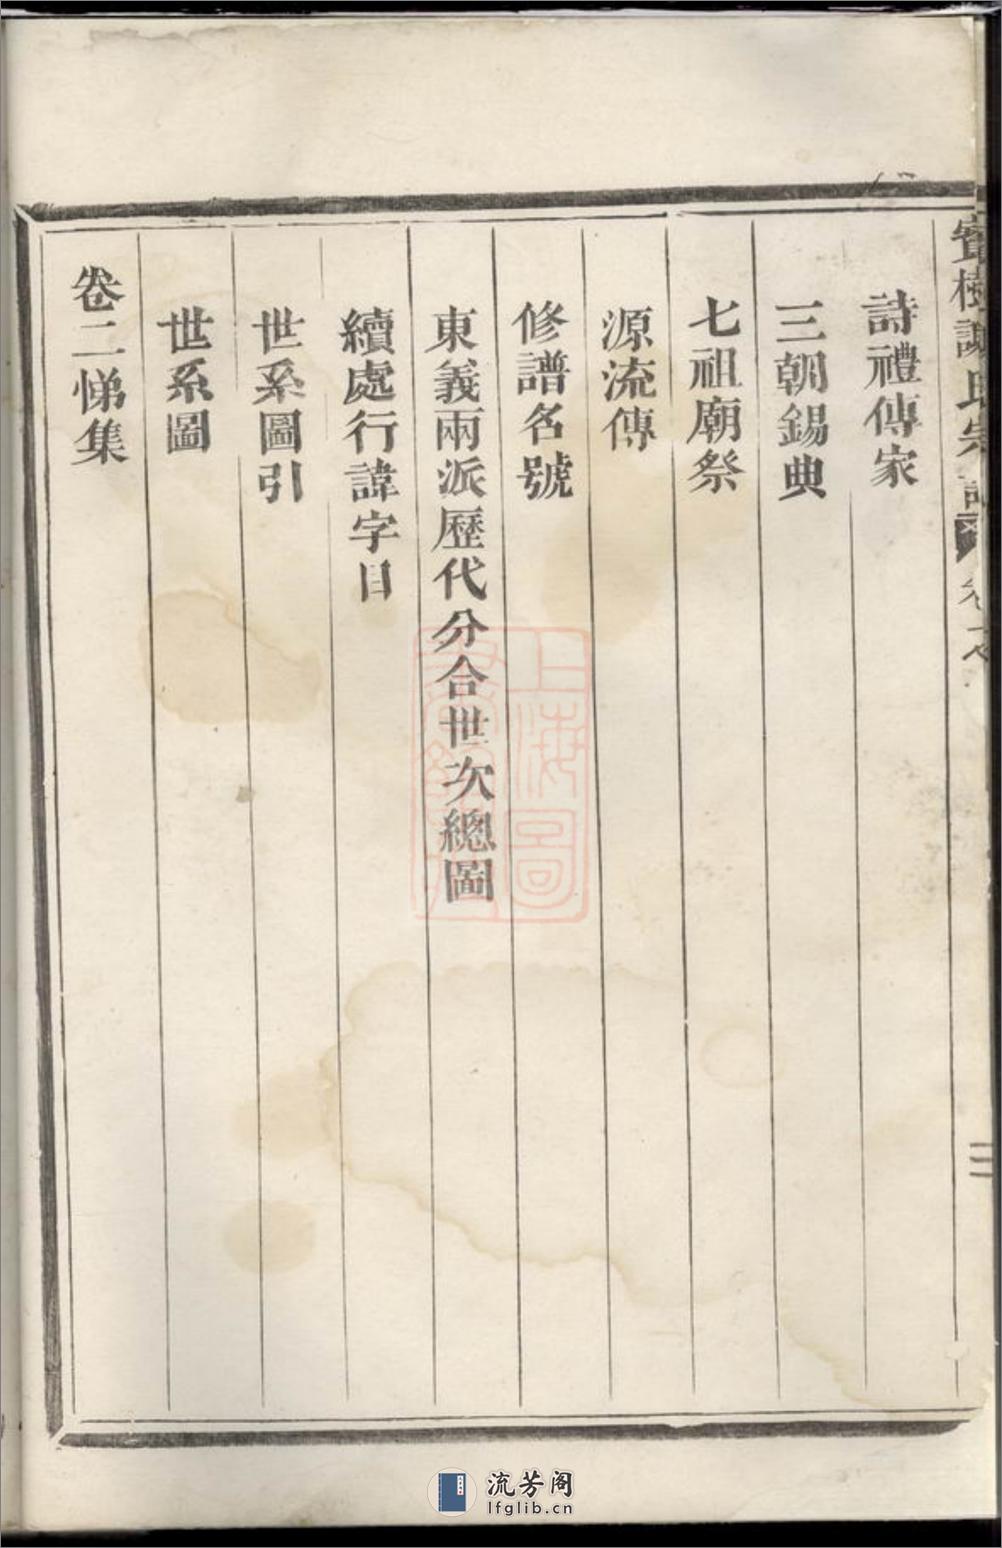 寳樹謝氏宗譜 卷之
二
詩禮傳家
三朝錫典
七祖廟祭
源流傳
修譜名號
東義兩派歷代分合世次總圖
續處行諱字目
世系圖引
世系圖
卷二悌集
上海圖
流芳阁
lfglib.cn